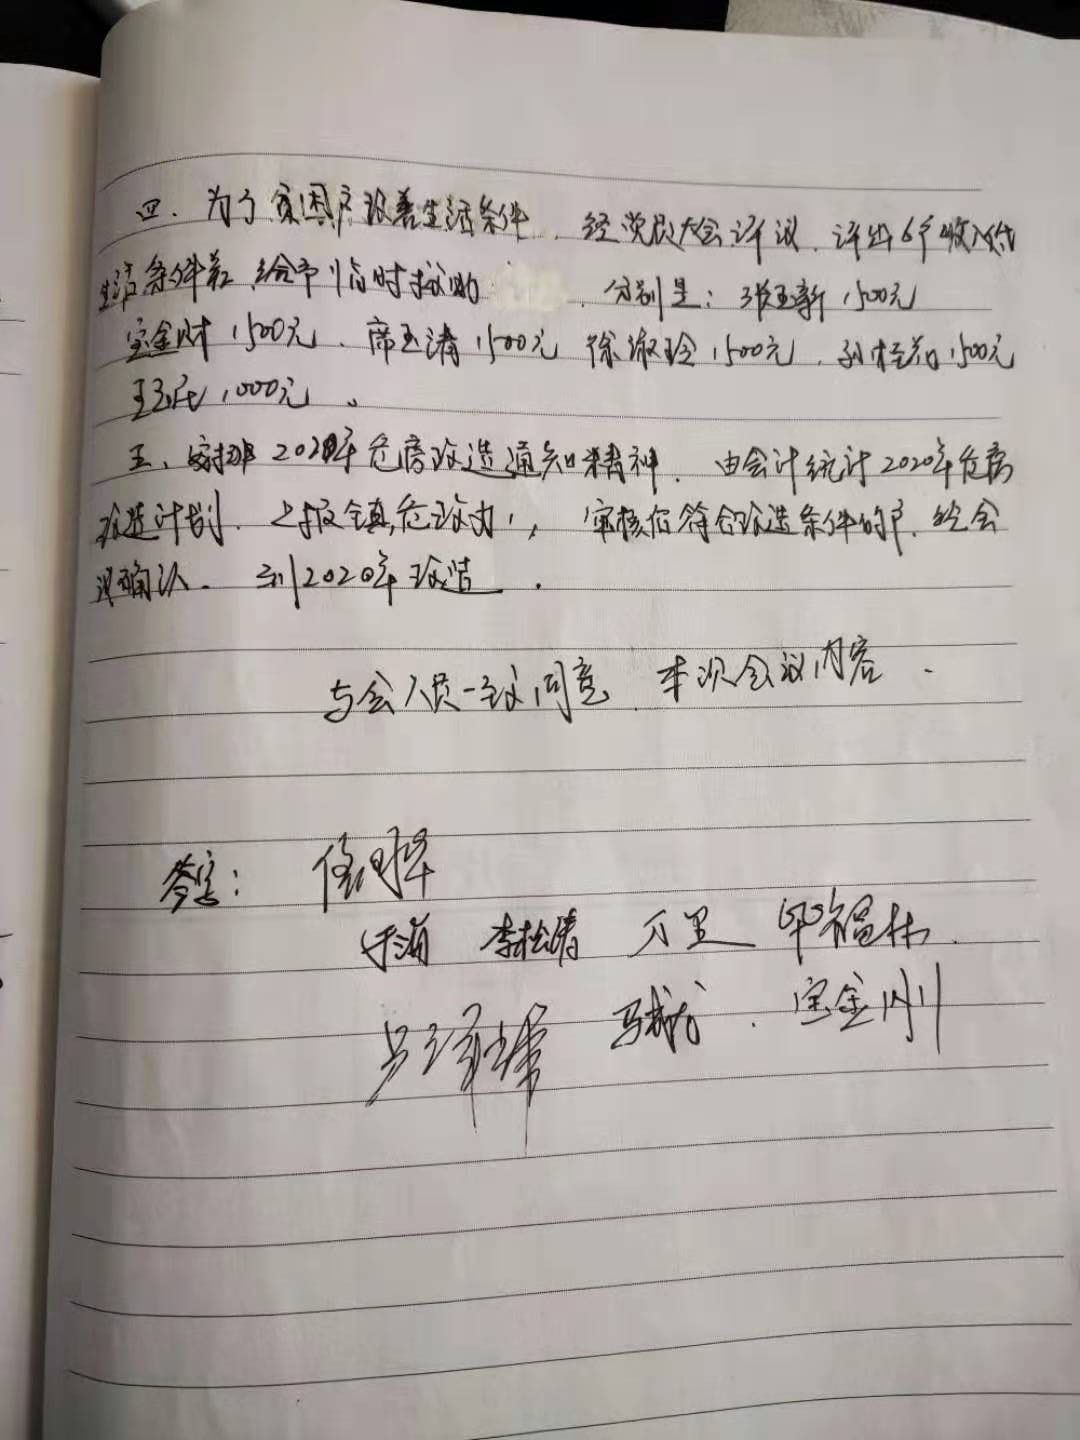 四、为了贫困户改善生活条件,经党员大会评议,评出6户收入低
生活条件差,给予临时救助,分别是:张玉新1500元
宝金财1500元、席玉涛1500元 徐淑玲1500元,孙 1500元
王 1000元。
五、安排2020年危房改造通知精神,由会计统计2020年危房
改造计划,上报镇危改办,审核后符合改造条件的户,经会
议确认,列2020年改造.
与会人员一致同意,本次会议内容.
签字:
于海 李松涛 万里 福林
马 宝金刚